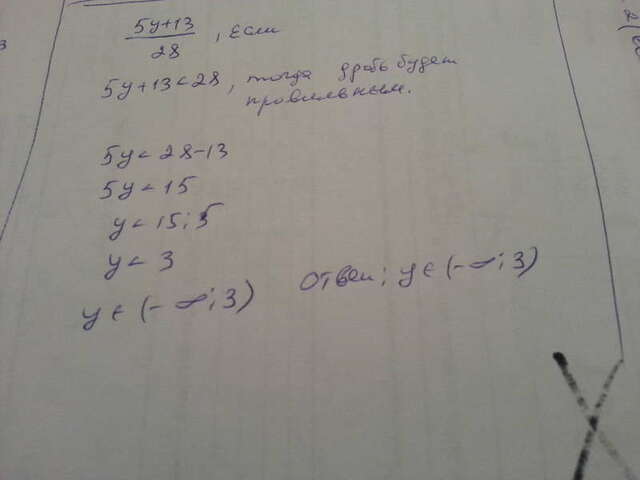 5y+13
28
, если
5y+13<28, тогда дробь будет
правильным.
5y<28-13
5y<15
y<15:5
y<3
y∈(-∞;3)
Ответ: y∈(-∞;3)